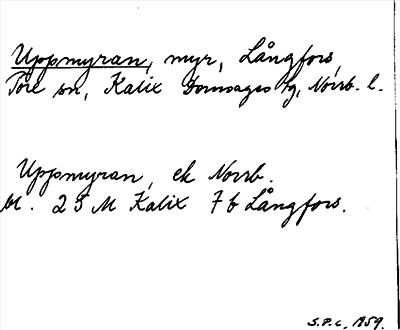 Uppmyran, myr, Långfors,
Töre sn, Kalix domsagas tg, Norrb. l.
Uppmyran, ek Norrb.
bl. 25 M Kalix 7b Långfors.
S.P.C. 1959.